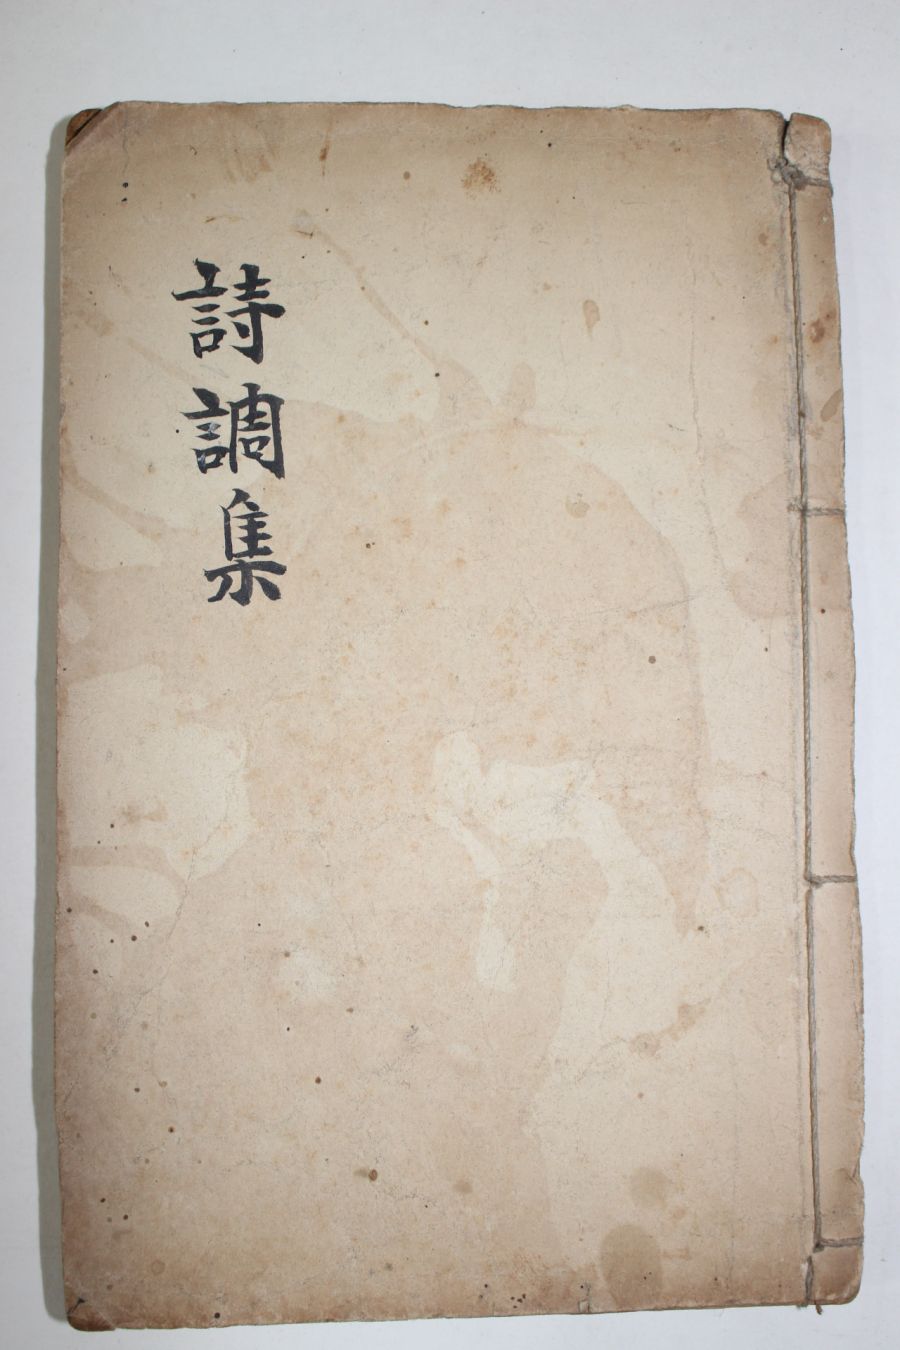 詩調集